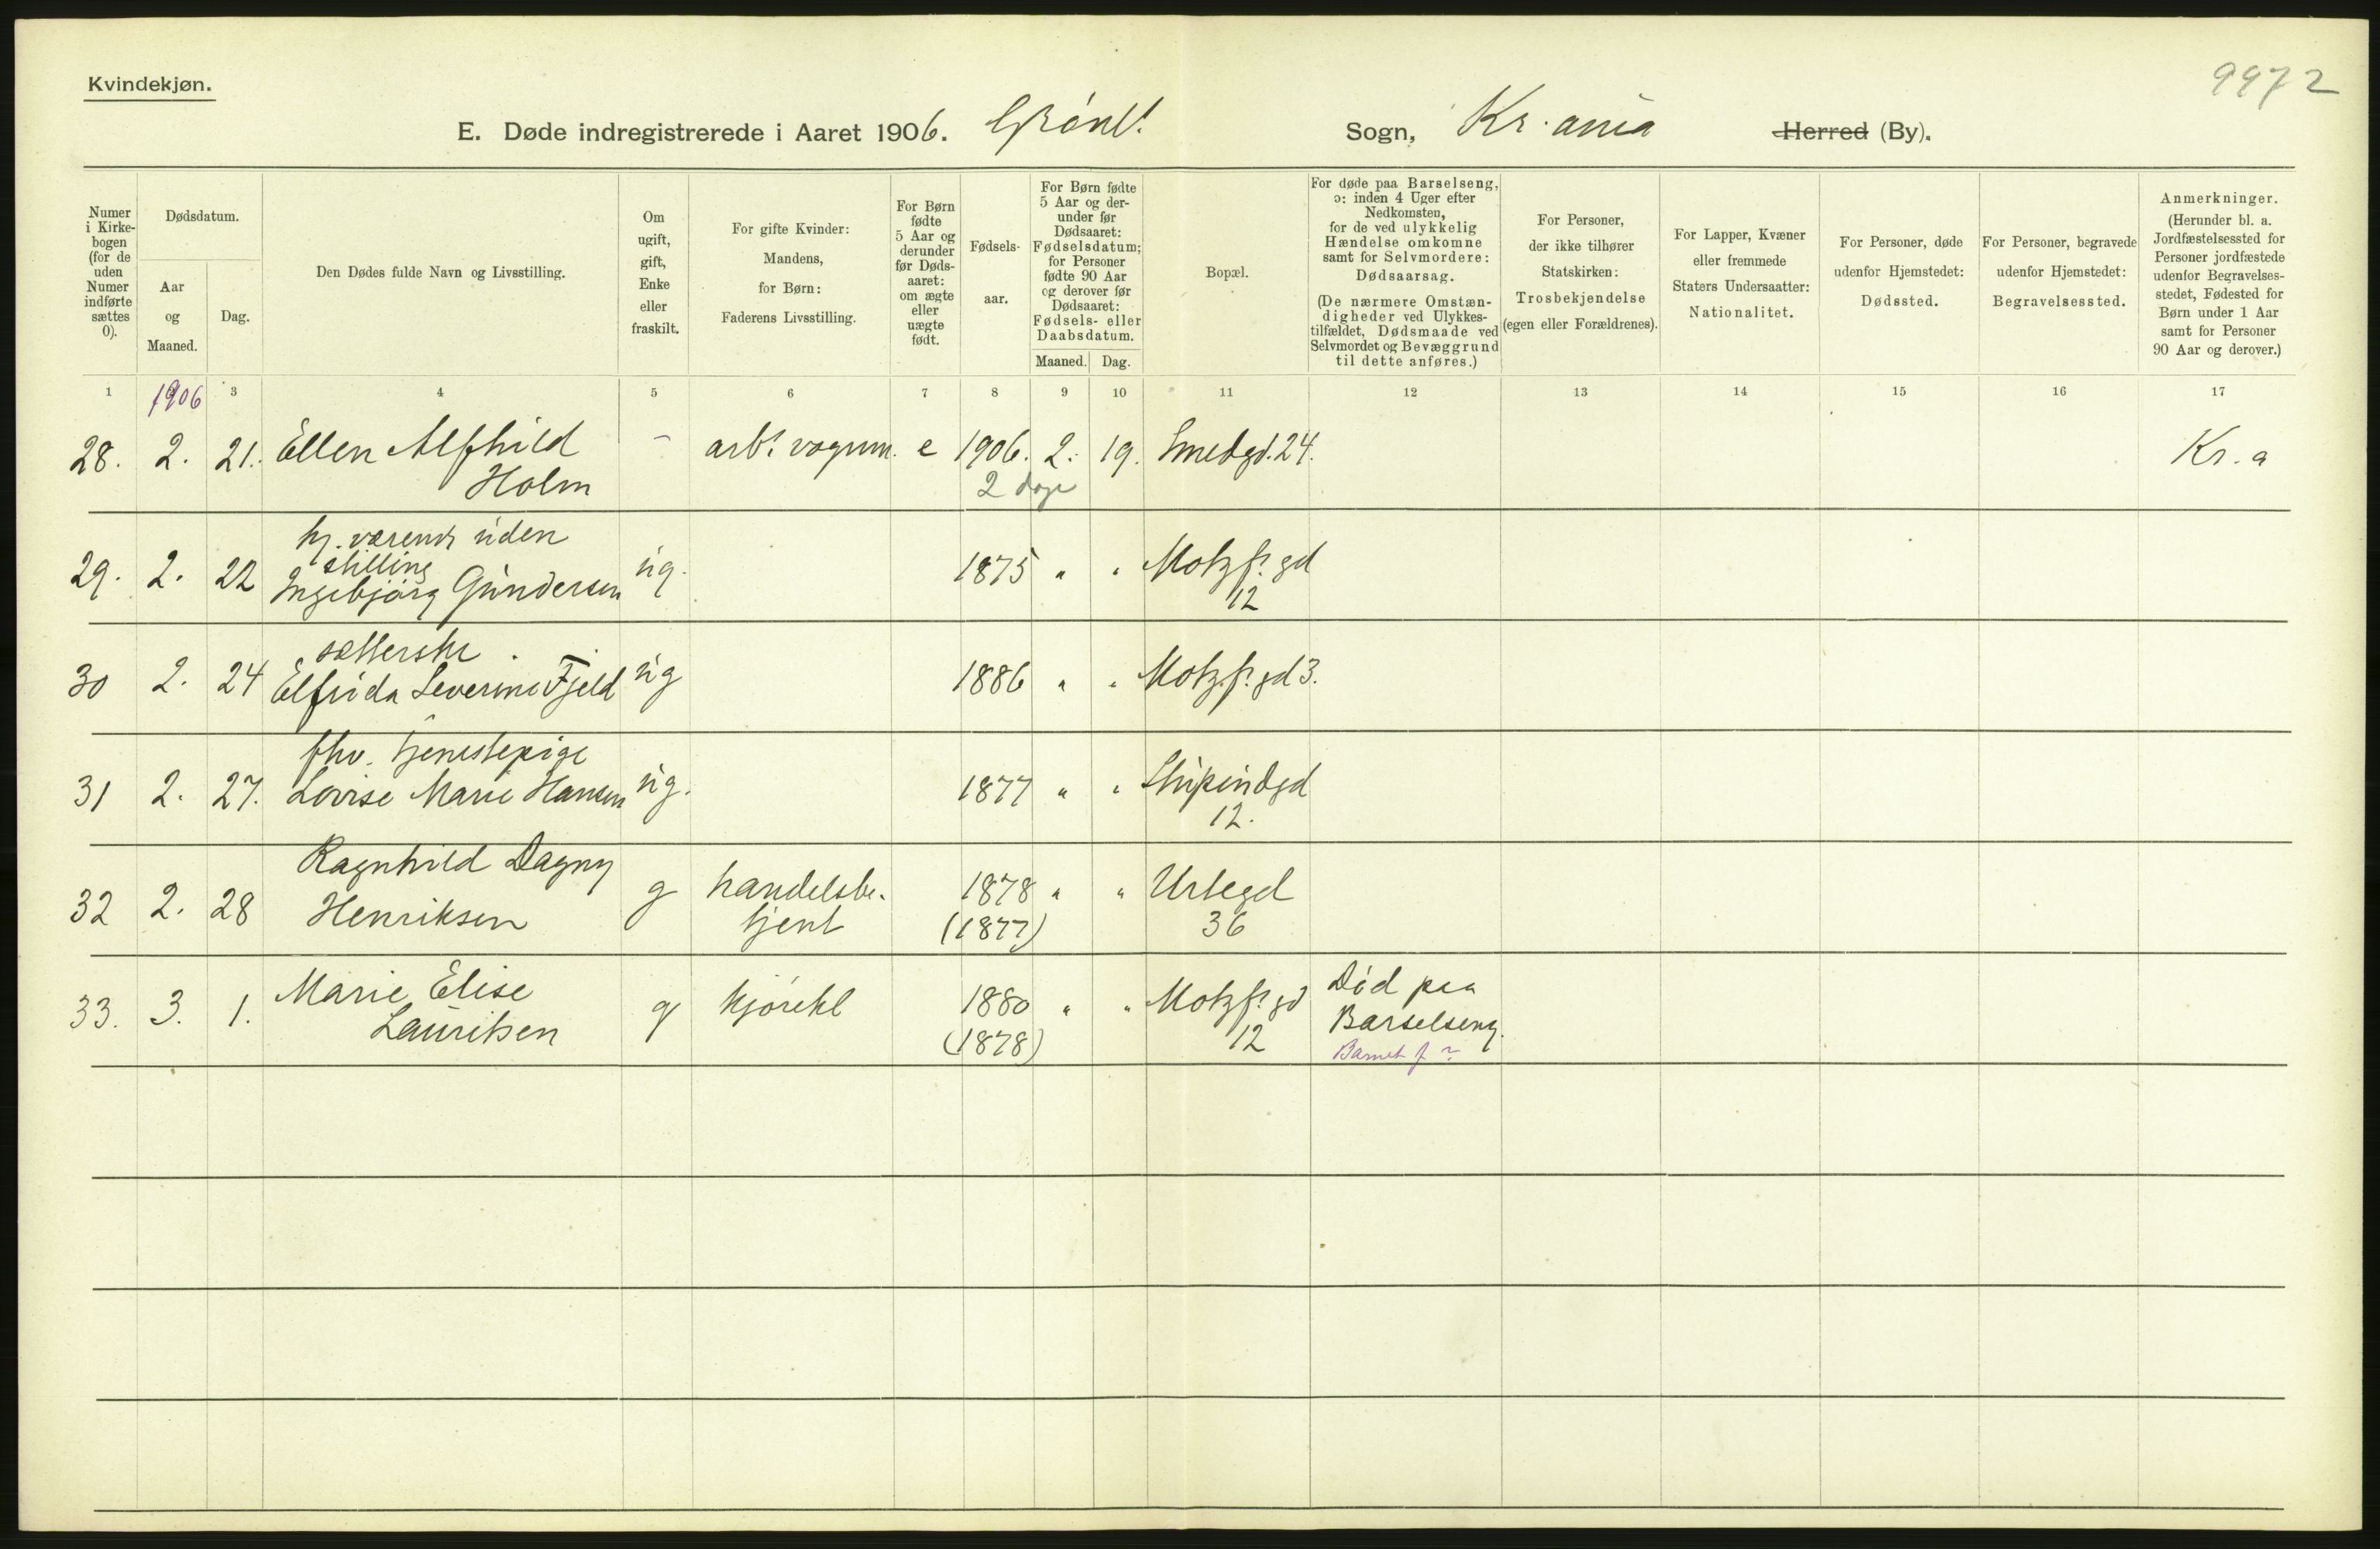 Kvindekjøn.
9972
E. Døde indregistrerede i Aaret 1906. Grönl. Sogn, Kr.ania Herred (By).
Numer i Kirkebogen (for de uden Numer indførte sættes 0).
Dødsdatum.
Aar og Maaned.
Dag.
Den Dødes fulde Navn og Livsstilling.
Om ugift, gift, Enke eller fraskilt.
For gifte Kvinder: Mandens, for Børn: Faderens Livsstilling.
For Børn fødte 5 Aar og derunder før Dødsaaret: om ægte eller uægte født.
Fødselsaar.
For Børn fødte 5 Aar og derunder før Dødsaaret: Fødselsdatum; for Personer fødte 90 Aar og derover før Dødsaaret: Fødsels- eller Daabsdatum.
Maaned. Dag.
Bopæl.
For døde paa Barselseng, ɔ: inden 4 Uger efter Nedkomsten, for de ved ulykkelig Hændelse omkomne samt for Selvmordere: Dødsaarsag.
(De nærmere Omstændigheder ved Ulykkestilfældet, Dødsmaade ved Selvmordet og Bevæggrund til dette anføres.)
For Personer, der ikke tilhører Statskirken: Trosbekjendelse (egen eller Forældrenes).
For Lapper, Kvæner eller fremmede Staters Undersaatter: Nationalitet.
For Personer, døde udenfor Hjemstedet: Dødssted.
For Personer, begravede udenfor Hjemstedet: Begravelsessted.
Anmerkninger. (Herunder bl. a. Jordfæstelsessted for Personer jordfæstede udenfor Begravelsesstedet, Fødested for Børn under 1 Aar samt for Personer 90 Aar og derover.)
1 3 4 5 6 7 8 9 10 11 12 13 14 15 16 17
1906
28. 2. 21. Ellen Alfhild - arb. vognm. e 1906. 2. 19. Smedgd. 24. Kr. a
Holm 2 dage
hj. værende uden
stilling
29. 2. 22 Ingebjörg Gundersen ug. 1875 " " Motzf. gd
12
sætterske
30 2. 24 Elfrida Severine Fjeld ug 1886 " " Motzf. gd 3.
fhv. tjenestepige
31 2. 27. Lovise Marie Hansen ug. 1877 " " Stupindgd
12.
Ragnhild Dagny
32 2. 28 Henriksen g handelsbe- 1878 " " Urtegd
tjent (1877) 36
33. 3. 1. Marie Elise g kjørekl 1880 " " Motzf. gd Död paa
Lauritsen (1878) 12 Barselseng.
Barnet f ?